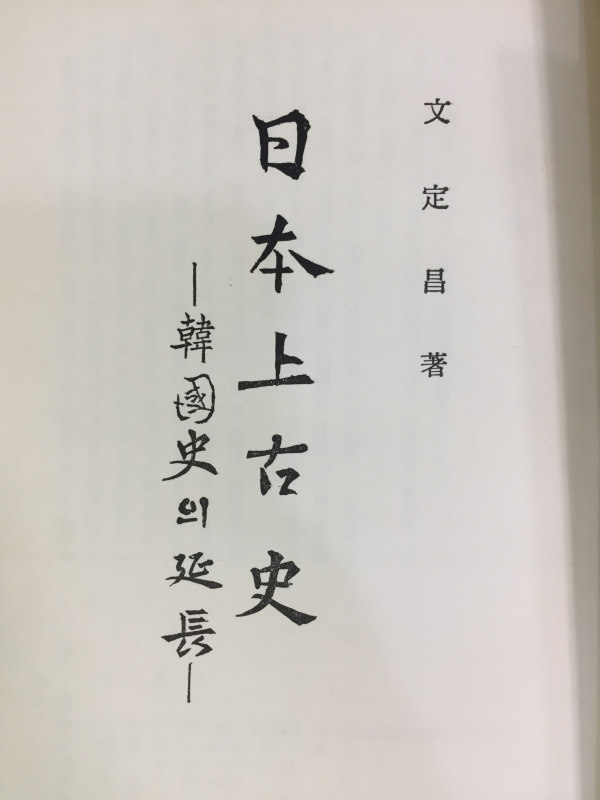 文定昌著
日本上古史
—韓國史의延長—